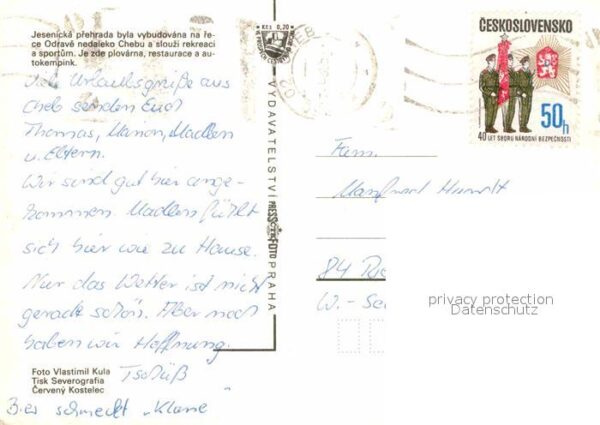 Jesenická přehrada byla vybudována na ře-
ce Odravě nedaleko Chebu a slouží rekreaci
a sportům. Je zde plovárna, restaurace a au-
tokempink.
Kčs 0,20
CHEB
ČESKOSLOVENSKO
50h
40 LET SBORU NÁRODNÍ BEZPEČNOSTI
Urlaubsgrüße aus
Cheb senden Euch
Thomas, Manon, Madlen
u. Eltern.
Wir sind gut hier ange-
kommen. Madlen fühlt
sich hier wie zu Hause.
Nur das Wetter ist nicht
gerade schön. Aber noch
haben wir Hoffnung.
Tschüß
Bier schmeckt „Klasse"
VYDAVATELSTVÍ PRESSFOTO PRAHA
Fam.
Manfred
84
W.-
privacy protection
Datenschutz
Foto Vlastimil Kula
Tisk Severografia
Červený Kostelec